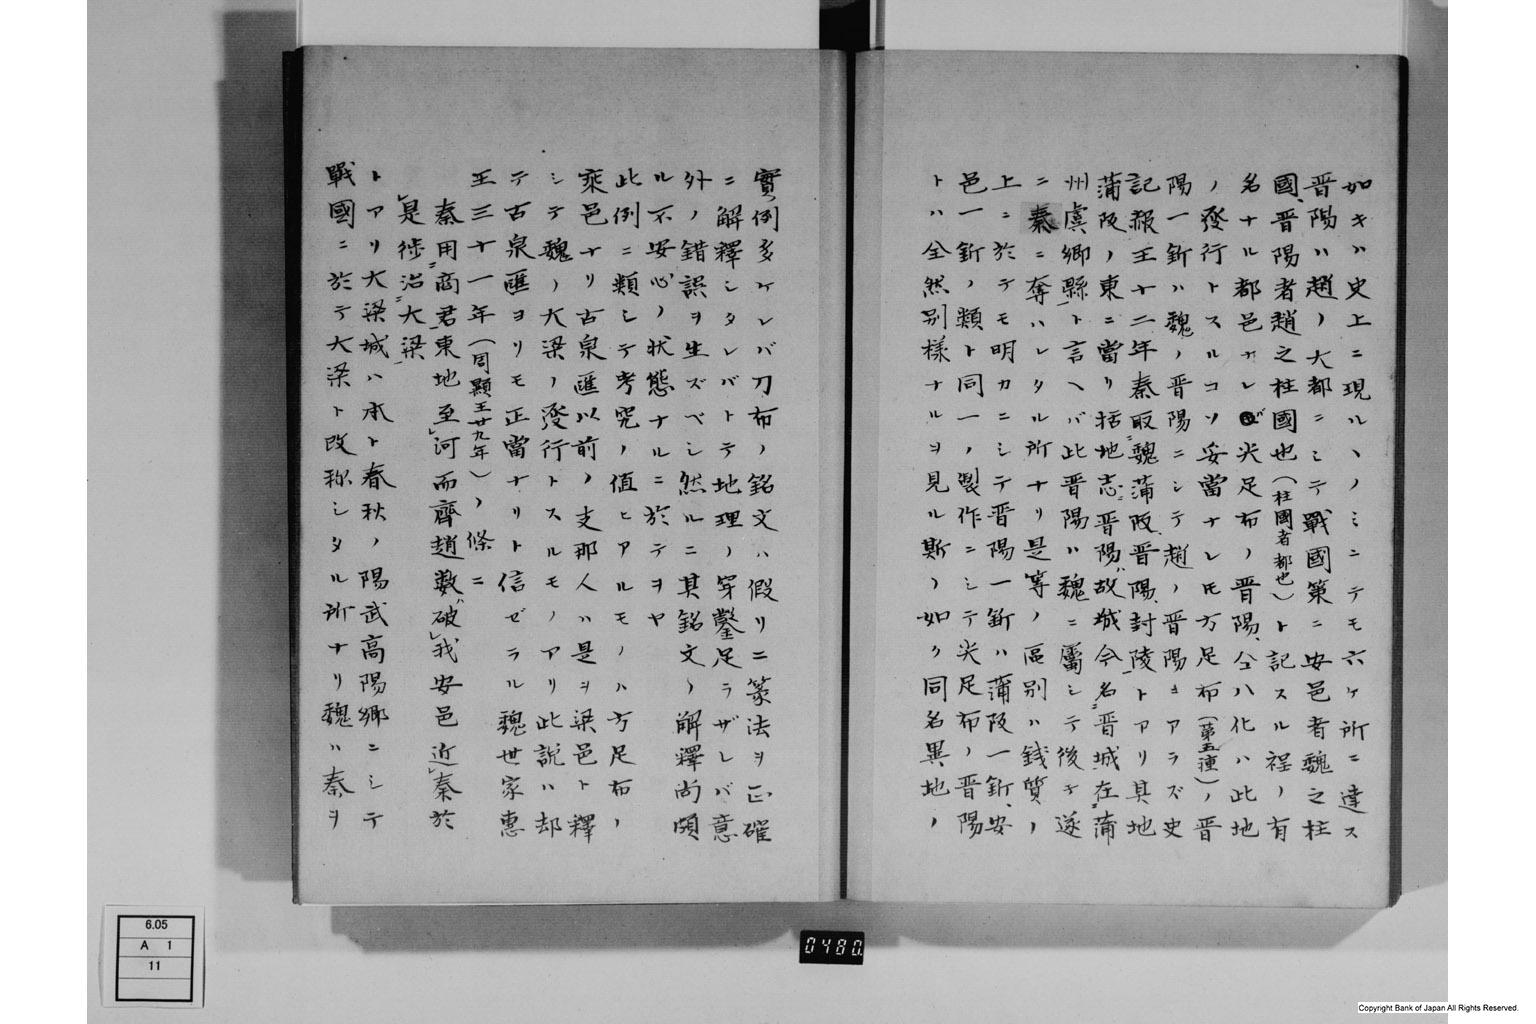 如キハ史上ニ現ハルヽノミニテモ六ヶ所ニ達ス
晋陽ハ趙ノ大都ニシテ戰國策ニ安邑者魏之柱
國、晋陽者趙之柱國也(柱國者都也)ト記スル程ノ有
名ナル都邑ナレバ尖足布ノ晋陽、仝ハ化ハ此地
ノ發行トスルコソ妥當ナレ𪜈方足布(第五種)ノ晋
陽一釿ハ魏ノ晋陽ニシテ趙ノ晋陽ニアラズ史
記赧王十二年秦取魏蒲阪、晋陽、封陵トアリ其地
蒲阪ノ東ニ當リ括地志ニ晋陽故城今名晋城在蒲
州虞郷縣ト言ヘバ此晋陽ハ魏ニ屬シテ後チ遂
ニ秦ニ奪ハレタル所ナリ是等ノ區別ハ錢質ノ
上ニ於テモ明カニシテ晋陽一釿ハ蒲阪一釿、安
邑一釿ノ類ト同一ノ製作ニシテ尖足布ノ晋陽
トハ全然別様ナルヲ見ル斯ノ如ク同名異地ノ
實例多ケレバ刀布ノ銘文ハ假リニ篆法ヲ正確
ニ解釋シタレバトテ地理ノ穿鑿足ラザレバ意
外ノ錯誤ヲ生ズベシ然ルニ其銘文ノ解釋尚頗
ル不安心ノ状態ナルニ於テヲヤ
此例ニ類シテ考究ノ値ヒアルモノハ方足布ノ
乘邑ナリ古泉匯以前ノ支那人ハ是ヲ梁邑ト釋
シテ魏ノ大梁ノ發行トスルモノアリ此説ハ却
テ古泉匯ヨリモ正當ナリト信ゼラル魏世家惠
王三十一年(同顯王廿九年)ノ條ニ
秦用商君東地至河而齊趙數破我安邑近秦於
是徙治大梁
トアリ大梁城ハ本ト春秋ノ陽武高陽郷ニシテ
戰國ニ於テ大梁ト改称シタル所ナリ魏ハ秦ヲ
6.05
A 1
11
0480
Copyright Bank of Japan All Rights Reserved.